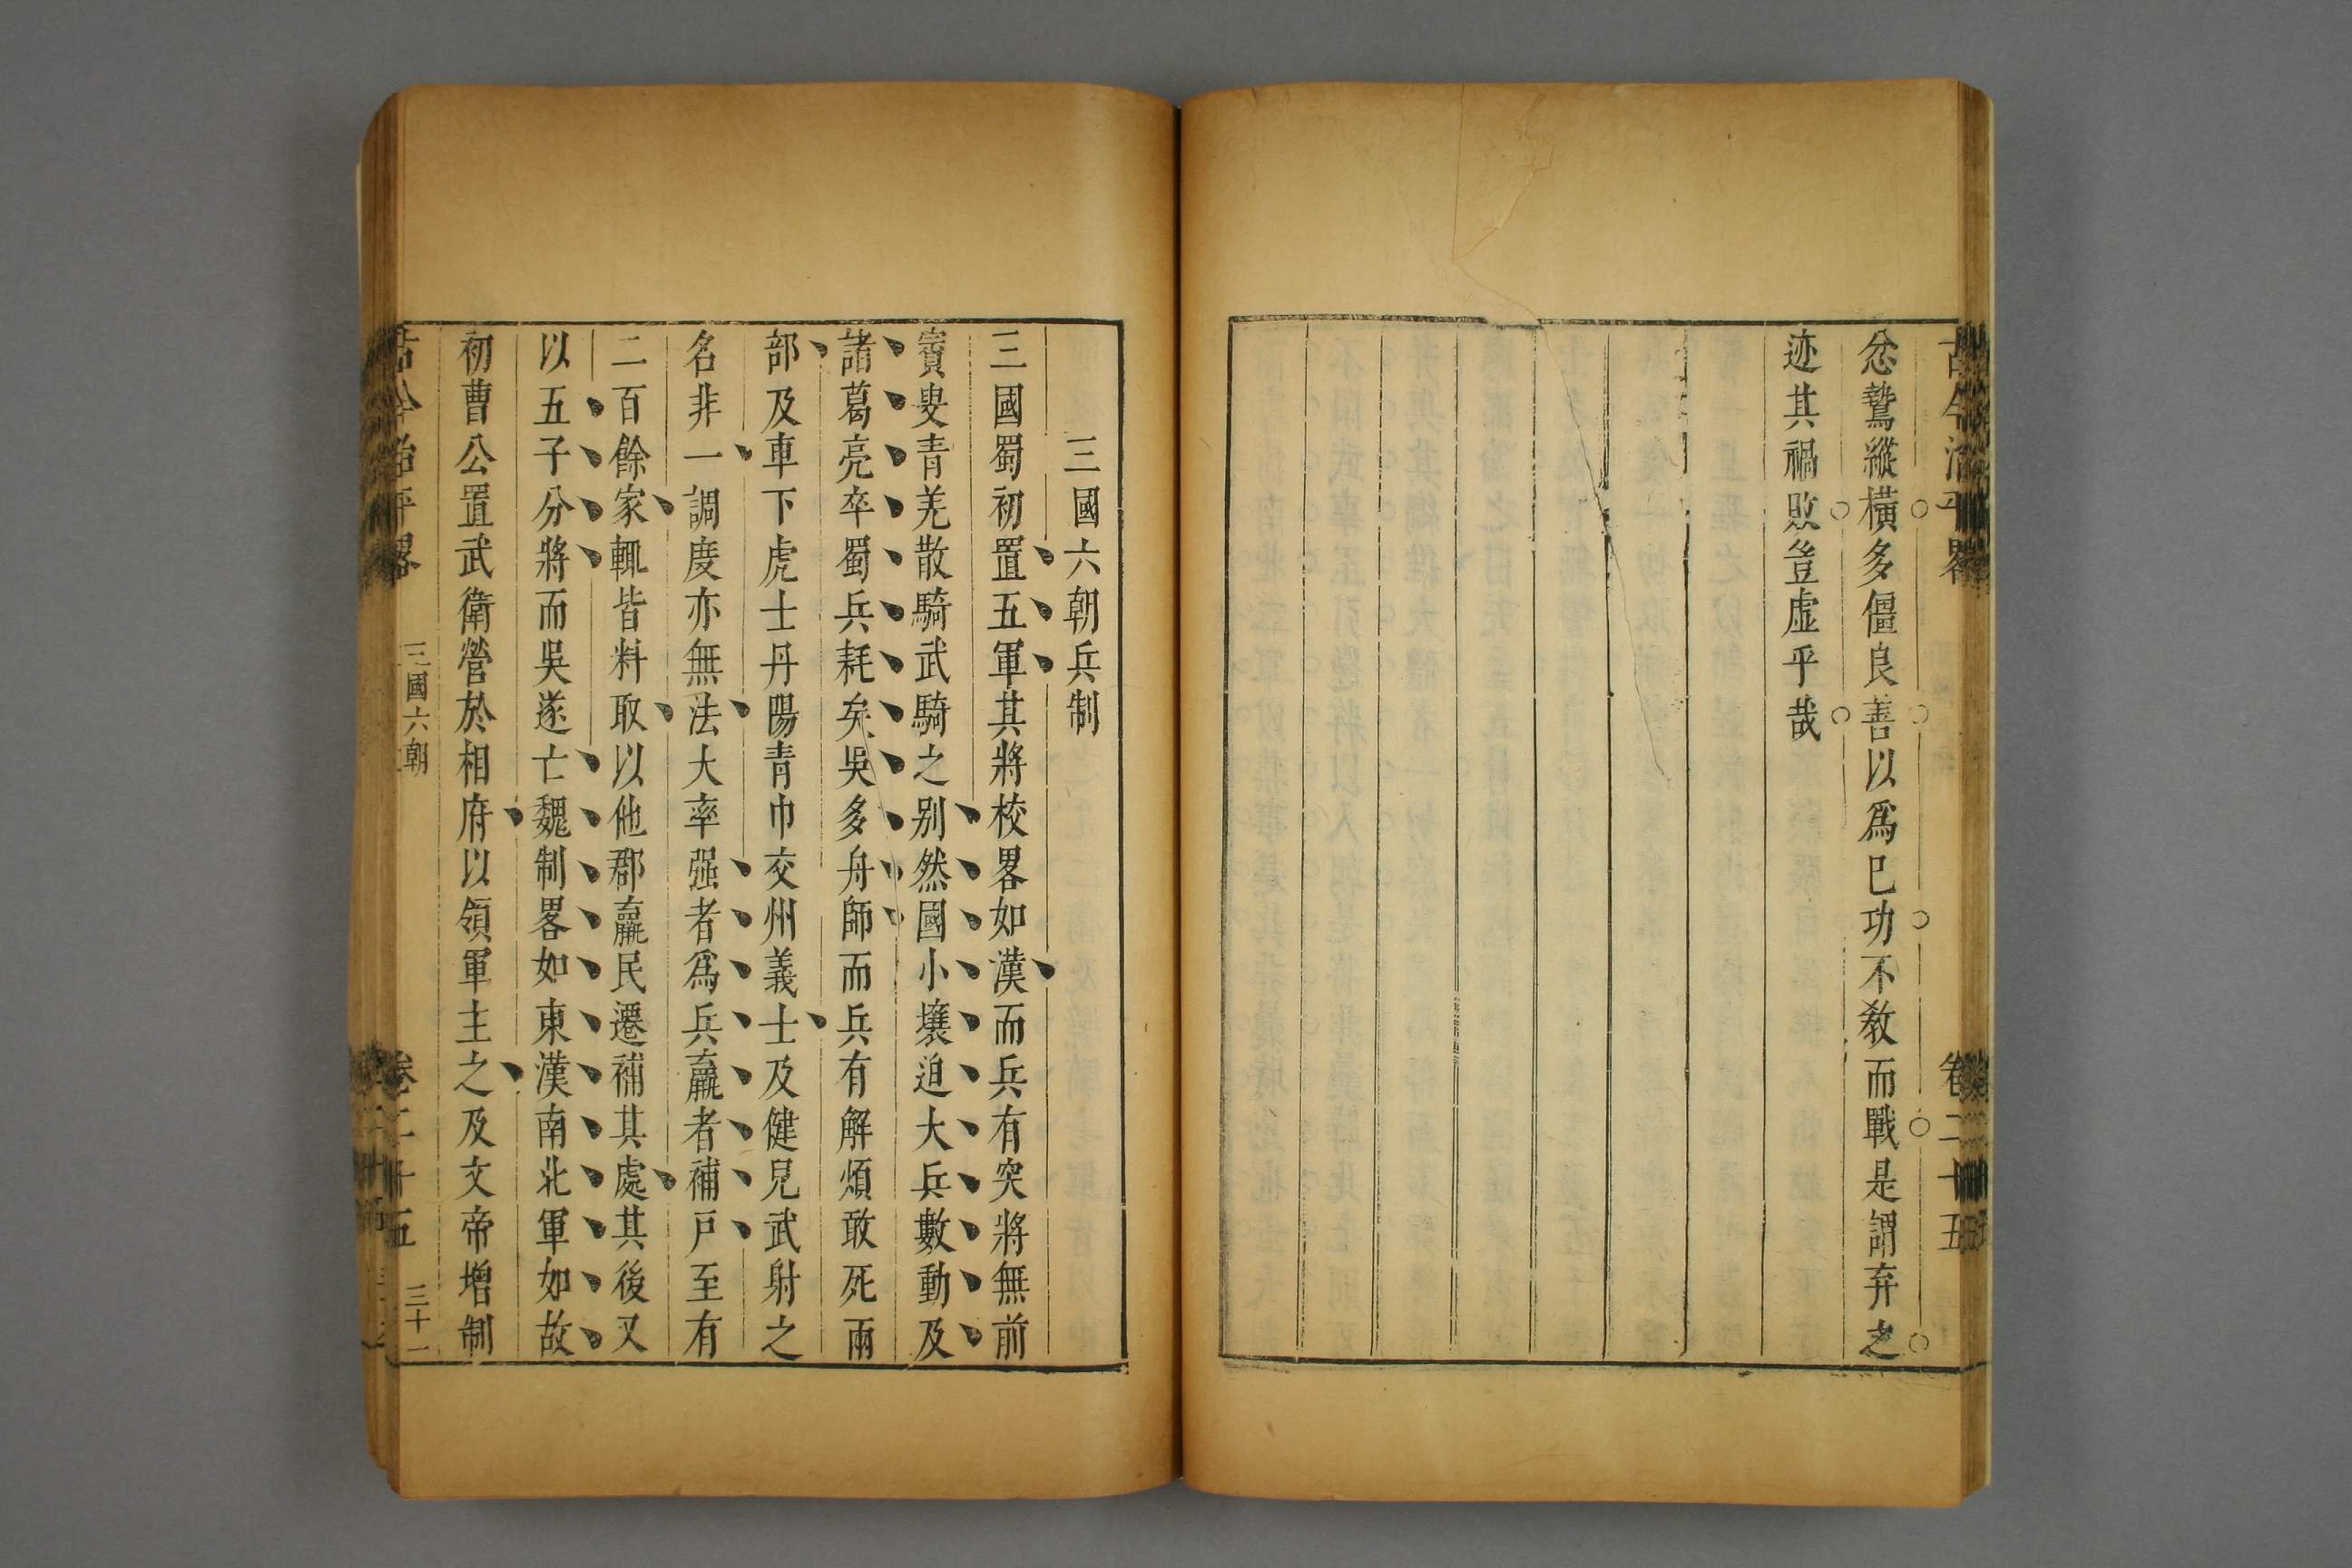 古今治平畧
卷二十五
忿鷙縱橫多僵良善以爲巳功不敎而戰是謂弃之
迹其禍敗豈虛乎哉
三國六朝兵制
三國蜀初置五軍其將校畧如漢而兵有突將無前
賨叟青羌散騎武騎之别然國小壤迫大兵數動及
諸葛亮卒蜀兵耗矣吳多舟師而兵有解煩敢死兩
部及車下虎士丹陽青巾交州義士及健兒武射之
名非一調度亦無法大率强者爲兵羸者補戸至有
二百餘家輒皆料取以他郡羸民遷補其處其後又
以五子分將而吳遂亡魏制畧如東漢南北軍如故
初曹公置武衛營於相府以領軍主之及文帝增制
古今治平畧
三國六朝
卷二十五
三十一